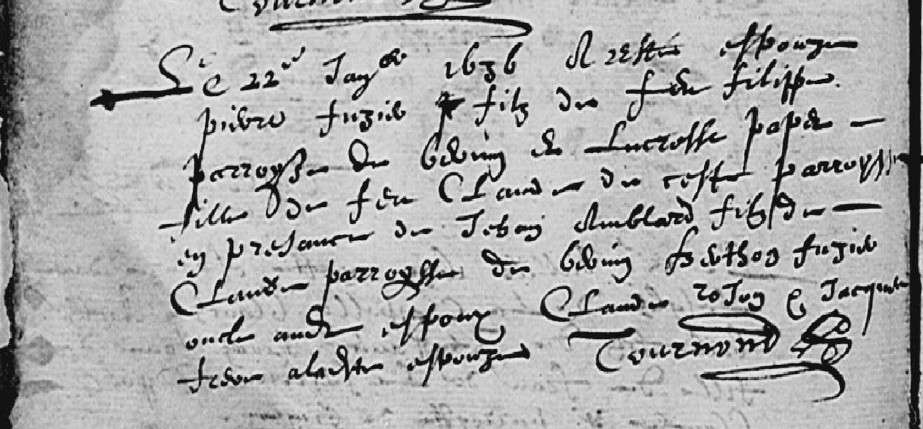 Tournond
Le 22e Janver 1636 A esté espouzé
pierre fuzie filz de feu filippe
parroysse de bévin et Lucresse papet
fille de feu Claude de ceste parroysse
en presance de Jehan Amblard filz de
Claude parroysse de bévin Berthon fuzie
oncle audt espoux Claude Jacques
frere a ladte espouze Tournond